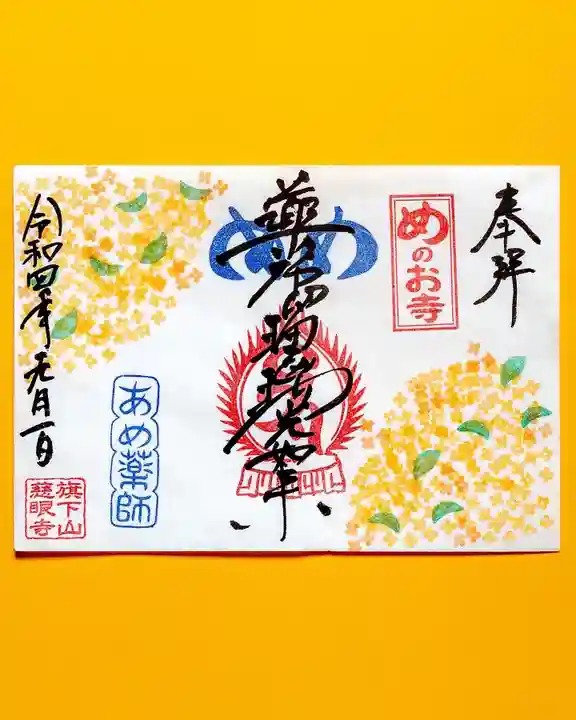 奉拝
めのお寺
薬師瑠璃光如来
めめ
あめ薬師
令和四年元月一日
旗下山
慈眼寺